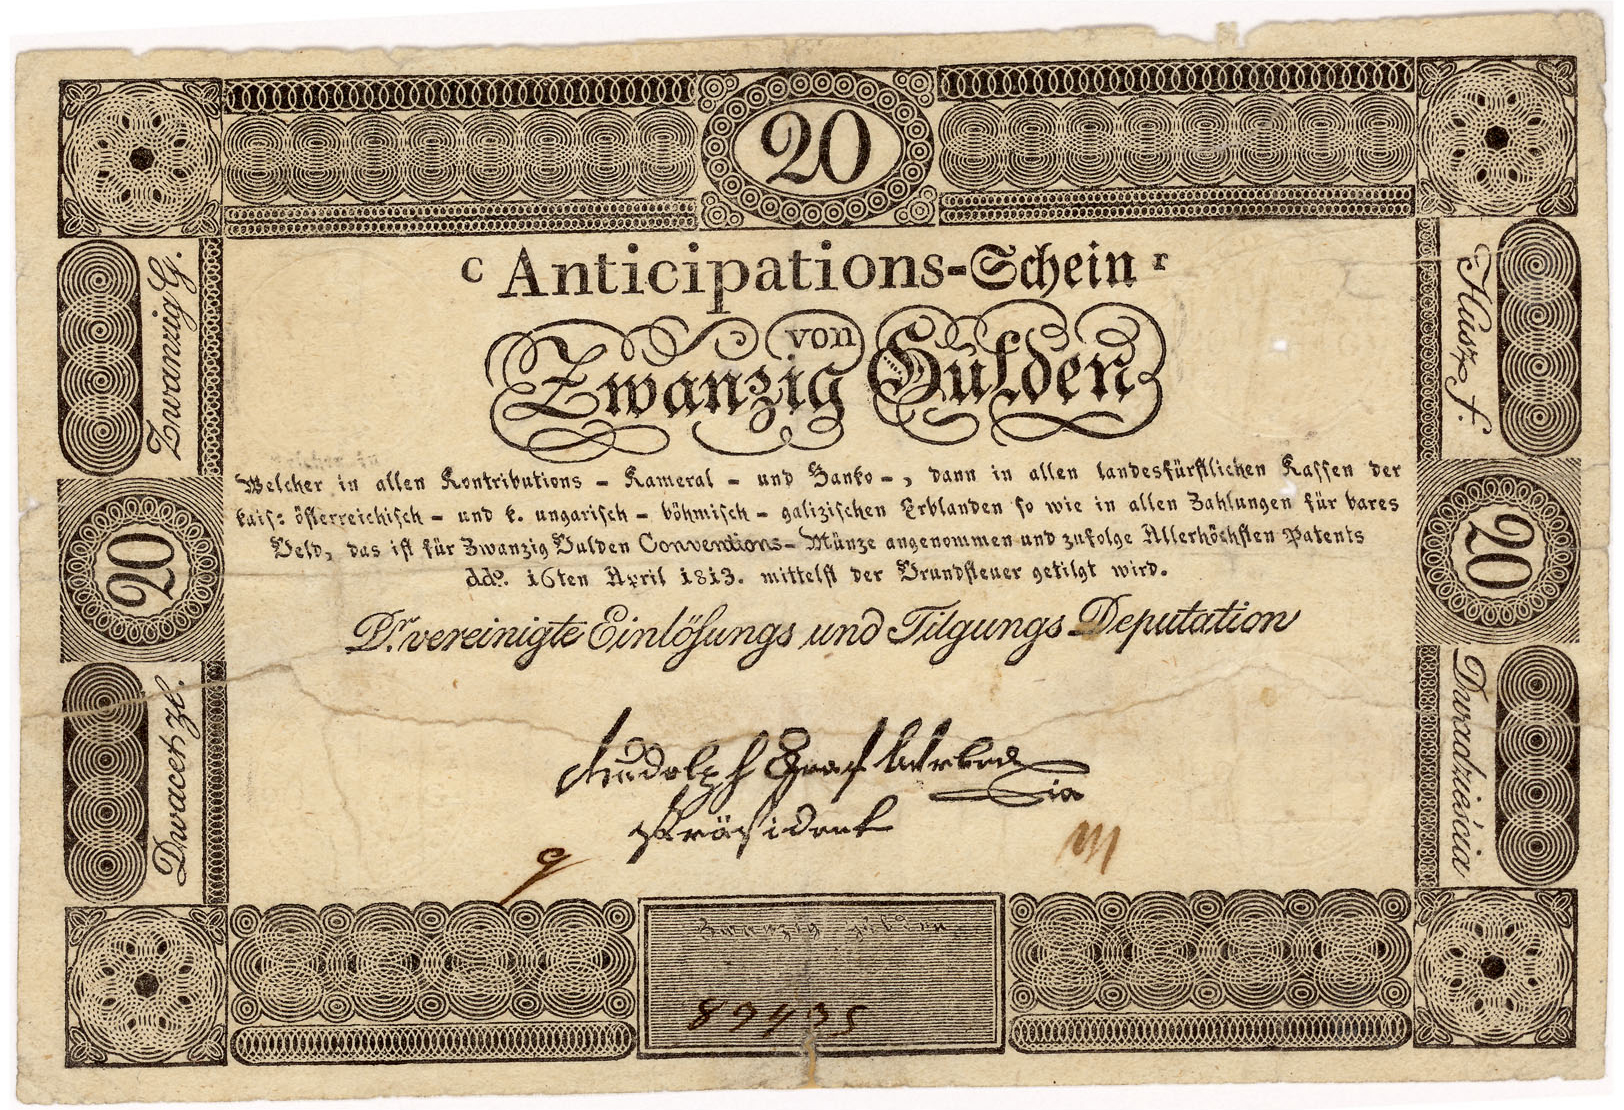 20
C Anticipations-Schein r
von
Zwanzig Gulden
Zwanzig G.
Husz f.
Welcher in allen Kontributions - Kameral - und Banko -, dann in allen landesfürstlichen Kassen der
kais: österreichisch - und k. ungarisch - böhmisch - galizischen Erblanden so wie in allen Zahlungen für bares
Geld, das ist für Zwanzig Gulden Conventions-Münze angenommen und zufolge Allerhöchsten Patents
ddo. 16ten April 1813. mittelst der Grundsteuer getilgt wird.
20
20
Dr. vereinigte Einlösungs und Tilgungs Deputation
Dwacet zl.
Dwadziáścia
Rudolph Graf Wrbna
Präsident
Zwanzig Gulden
89435